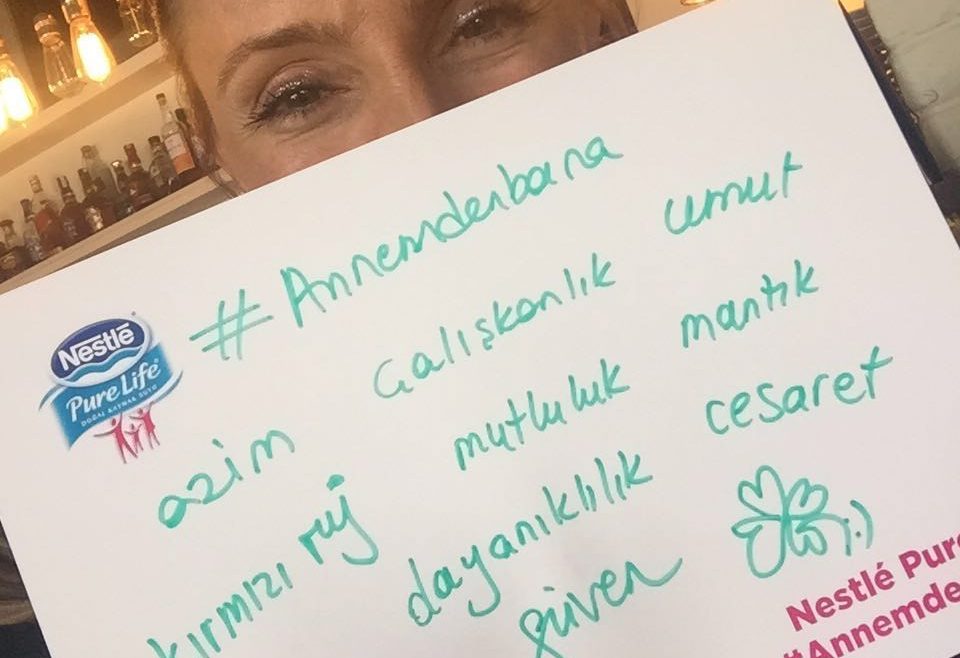 #Annemdenbana
azim çalışkanlık umut
kırmızı ruj mutluluk mantık
dayanıklılık cesaret
güven ;)
Nestlé
Pure Life®
DOĞAL KAYNAK SUYU
Nestlé Pure
#Annemde